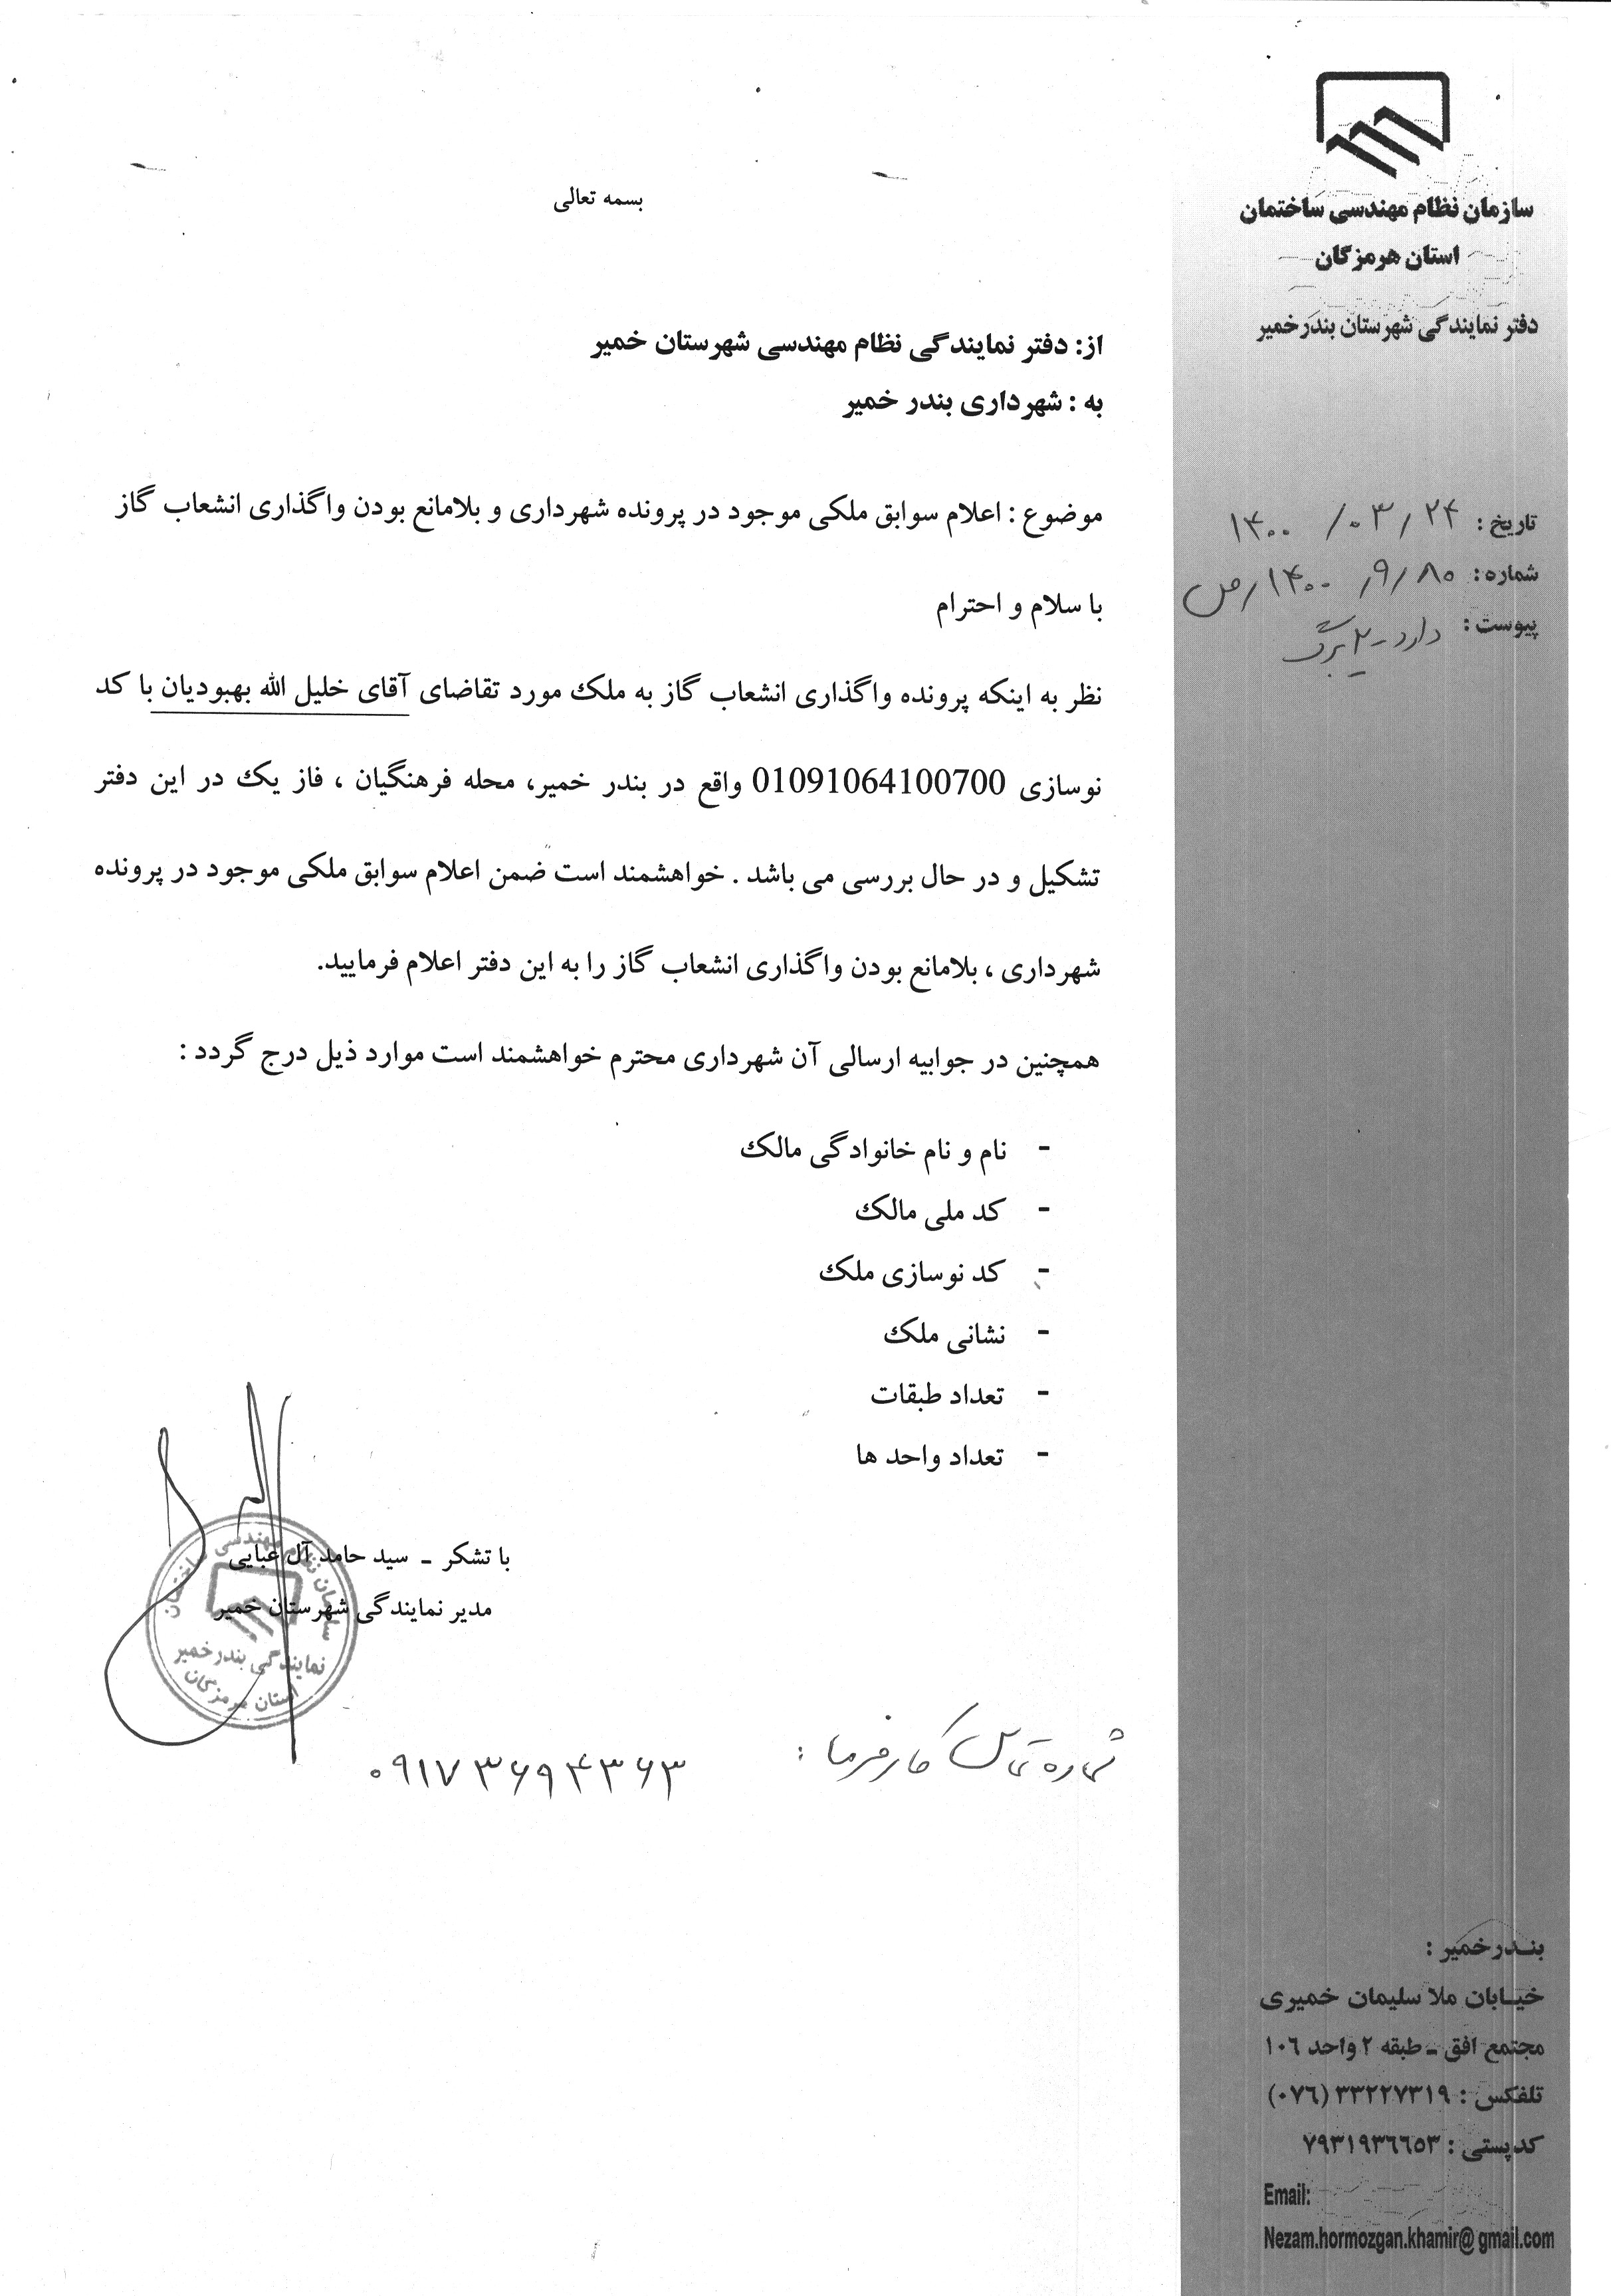 سازمان نظام مهندسی ساختمان
استان هرمزگان
دفتر نمایندگی شهرستان بندرخمیر
تاریخ : ۱۴۰۰/۰۳/۲۴
شماره : ۸۰/۹/۱۴۰۰/ص
پیوست : دارد - ۲ برگ
بسمه تعالی
از: دفتر نمایندگی نظام مهندسی شهرستان خمیر
به : شهرداری بندر خمیر
موضوع : اعلام سوابق ملکی موجود در پرونده شهرداری و بلامانع بودن واگذاری انشعاب گاز
با سلام و احترام
نظر به اینکه پرونده واگذاری انشعاب گاز به ملک مورد تقاضای آقای خلیل الله بهبودیان با کد
نوسازی 01091064100700 واقع در بندر خمیر، محله فرهنگیان ، فاز یک در این دفتر
تشکیل و در حال بررسی می باشد . خواهشمند است ضمن اعلام سوابق ملکی موجود در پرونده
شهرداری ، بلامانع بودن واگذاری انشعاب گاز را به این دفتر اعلام فرمایید.
همچنین در جوابیه ارسالی آن شهرداری محترم خواهشمند است موارد ذیل درج گردد :
- نام و نام خانوادگی مالک
- کد ملی مالک
- کد نوسازی ملک
- نشانی ملک
- تعداد طبقات
- تعداد واحد ها
با تشکر - سید حامد آل عبایی
مدیر نمایندگی شهرستان خمیر
سازمان نظام مهندسی ساختمان
نمایندگی بندرخمیر
استان هرمزگان
شماره تماس کارفرما : ۰۹۱۷۳۶۹۴۳۶۳
بندرخمیر :
خیابان ملا سلیمان خمیری
مجتمع افق - طبقه ۲ واحد ۱۰۶
تلفکس : ۳۳۲۲۷۳۱۹ (۰۷۶)
کدپستی : ۷۹۳۱۹۳۶۶۵۳
Email:
Nezam.hormozgan.khamir@gmail.com